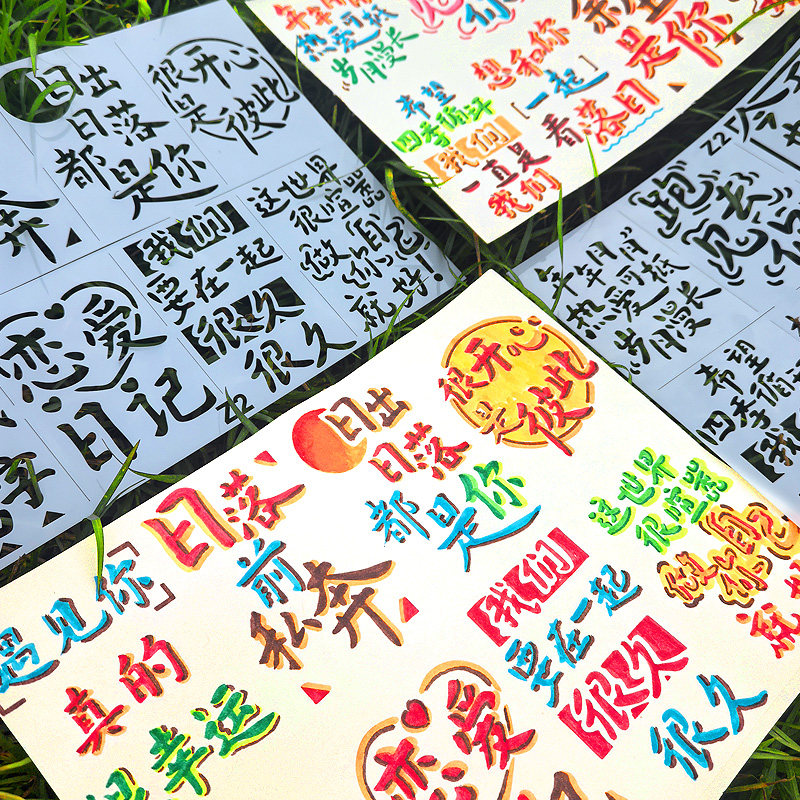 日出
日落
都是你
很开心
是彼此
奔
我们
要在一起
很久
很久
这世界
很喧嚣
做你自己
就好!
恋爱
日记
年年月月
热爱可抵
岁月漫长
希望
四季循环
[我们]
一直是
我们
想和你
[一起]
看落日
是你
跑
去
见你
Z2
年年月月
热爱可抵
岁月漫长
希望
四季循
我
「遇见你」
真的
幸运
日落
前
私奔
日出
日落
都是你
很开心
是彼此
我们
要在一起
很久
很久
这世界
很喧嚣
做你自己
就
恋爱